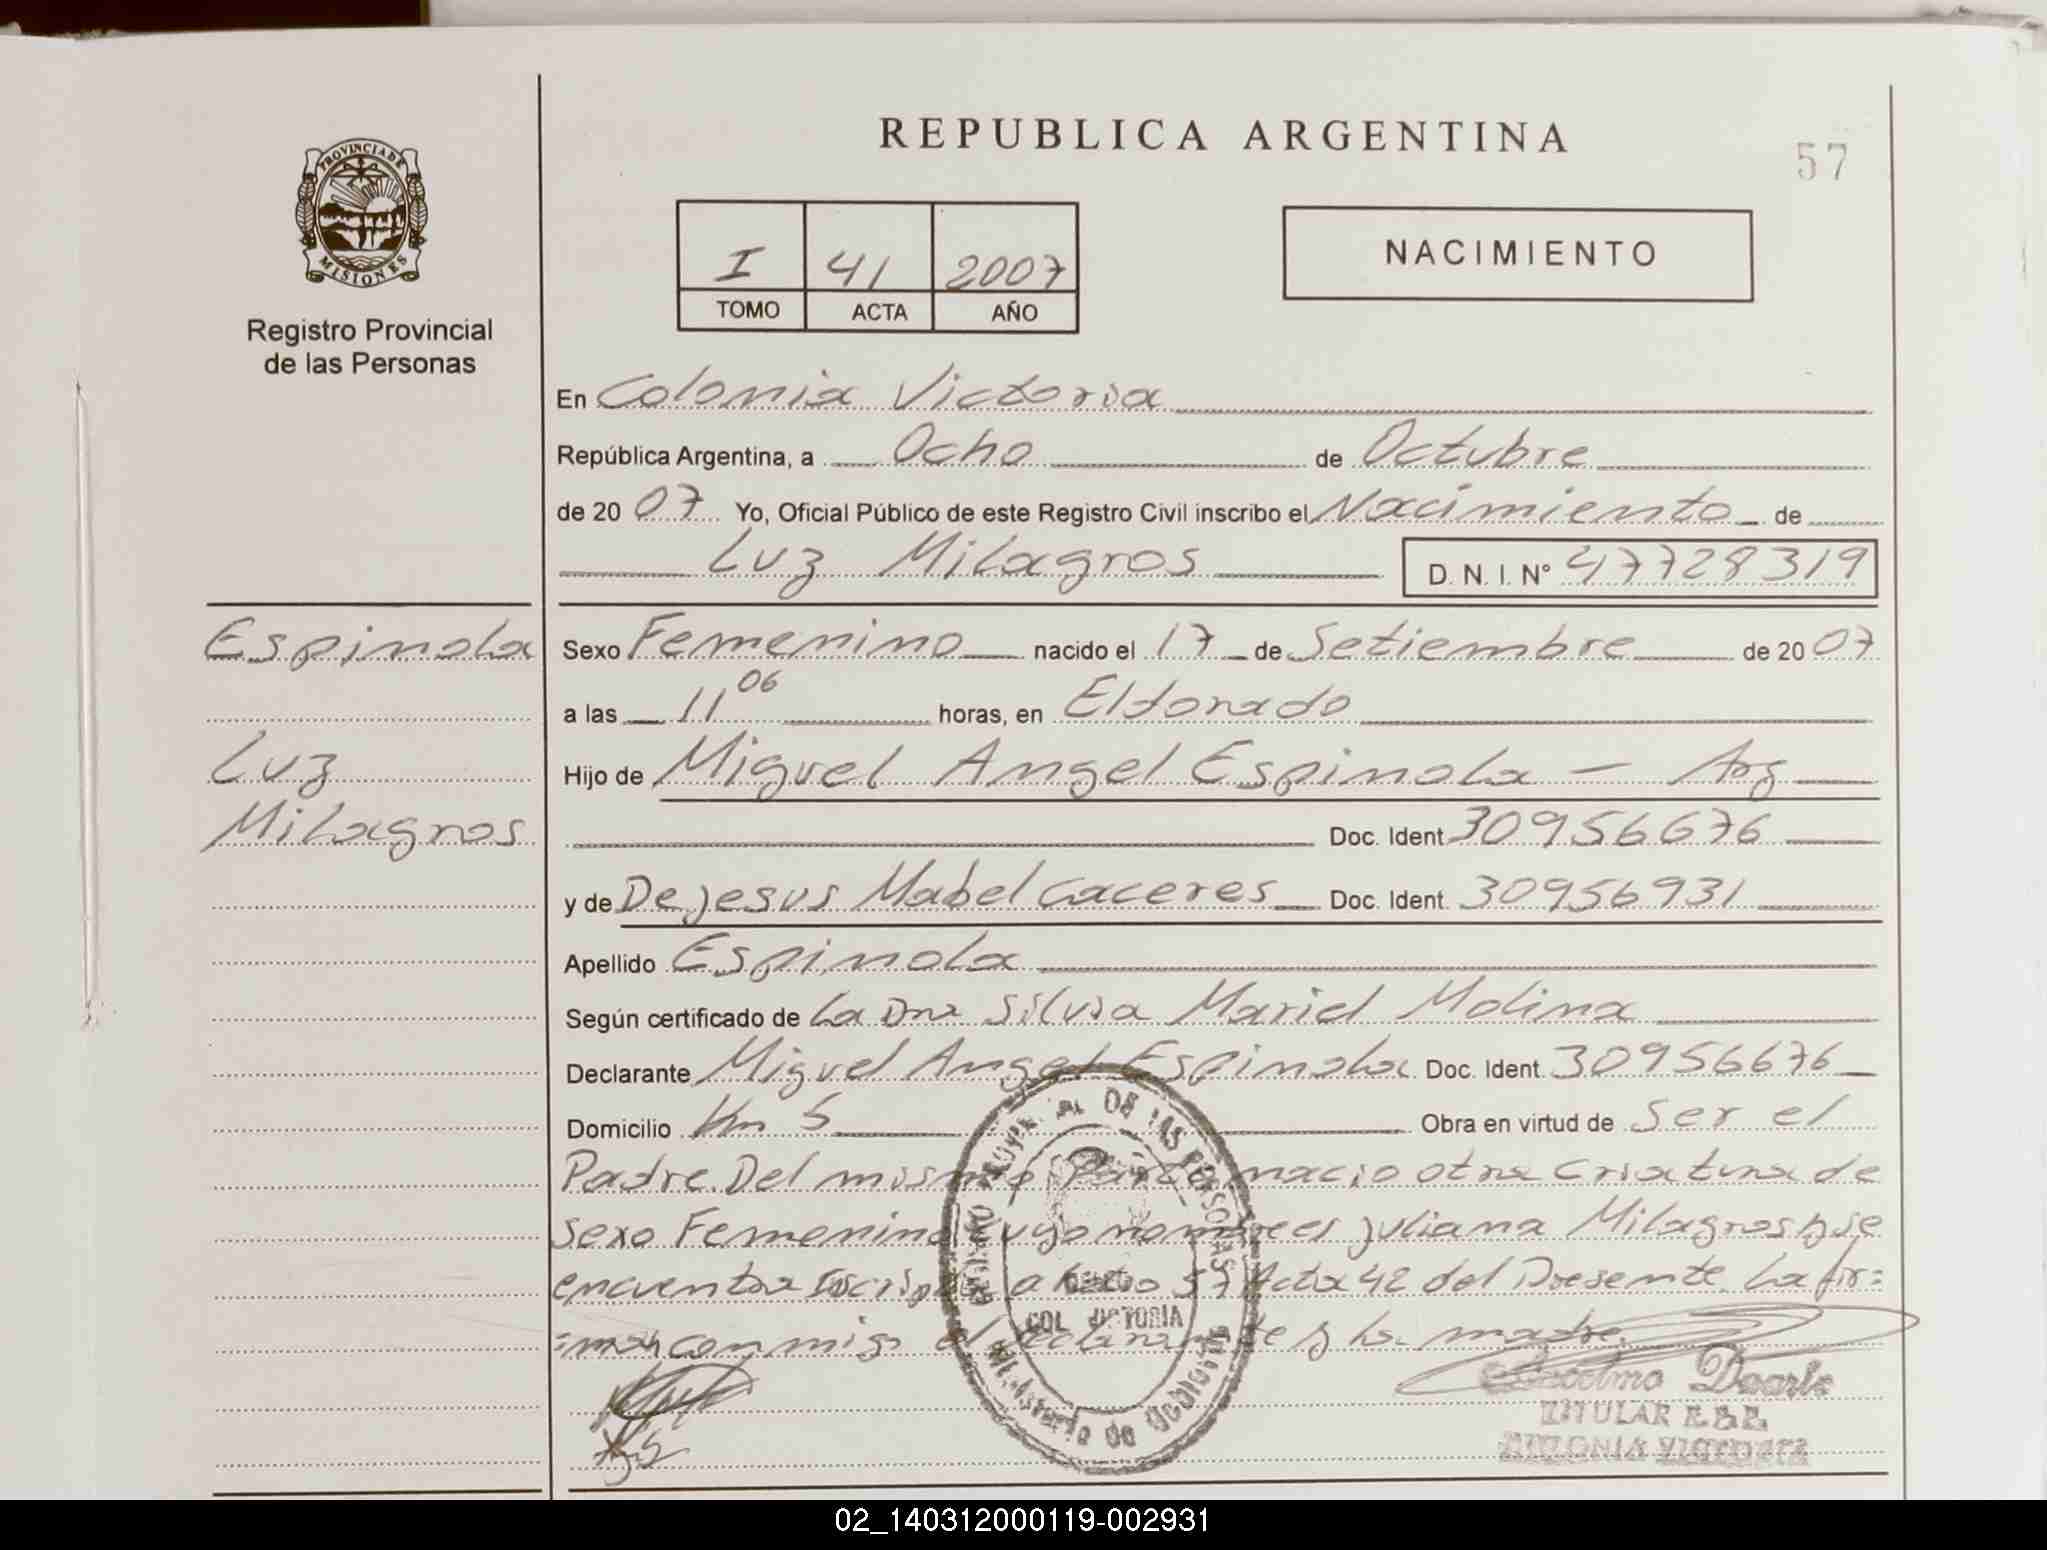 REPUBLICA ARGENTINA
57
PROVINCIA DE
MISIONES
Registro Provincial
de las Personas
I 41 2007
TOMO ACTA AÑO
NACIMIENTO
En Colonia Victoria
República Argentina, a Ocho de Octubre
de 2007 Yo, Oficial Público de este Registro Civil inscribo el Nacimiento de
Luz Milagros D. N. I. N° 47728319
Espinola
Luz
Milagros
Sexo Femenino nacido el 17 de Setiembre de 2007
a las 11 06 horas, en Eldorado
Hijo de Miguel Angel Espinola – Arg
Doc. Ident. 30956676
y de Dejesus Mabel Caceres Doc. Ident. 30956931
Apellido Espinola
Según certificado de La Dra Silvia Mariel Molina
Declarante Miguel Angel Espinola Doc. Ident. 30956676
Domicilio Km 5 Obra en virtud de Ser el
Padre. Del mismo Parto nacio otra Criatura de
Sexo Femenino cuyo nombre es Juliana Milagros y se
encuentra Inscripta a folio 57 Acta 42 del Presente. La fir=
=man conmigo el declarante y la madre.
COL. VICTORIA
Ministerio de Gobierno
Duarte
TITULAR R.P.P.
COLONIA VICTORIA
02_140312000119-002931